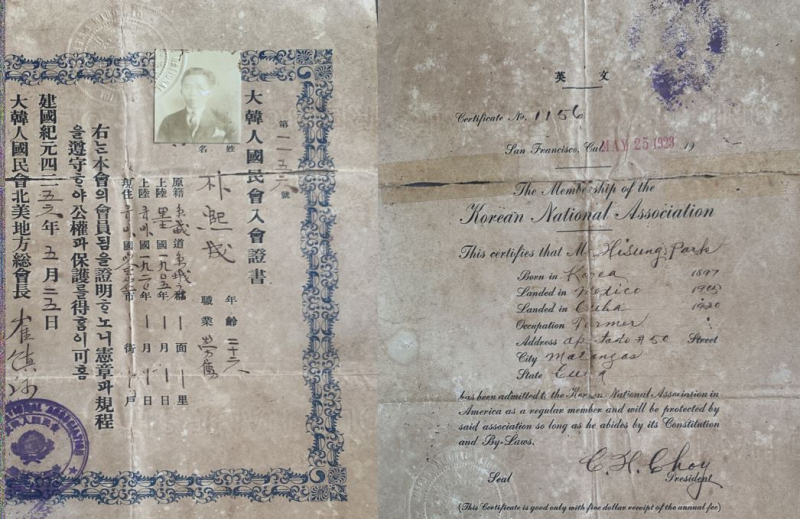 大韓人國民會入會證書
第一一五六號
姓名 朴熙成
年齡 二十六
職業 勞働
原籍 道 面 里
上陸 墨國一九〇五年 月 日
上陸 國一九二〇年 月 日
現住 國 市 街 戶
右는 本會의 會員됨을 證明ᄒᆞ노니 憲章과 規程
을 遵守ᄒᆞ야 公權과 保護를 得ᄒᆞᆷ이 可홈
建國紀元四二五六年 五月 二五日
大韓人國民會北美地方總會長 崔鎭河
英文
Certificate No. 1156
San Francisco, Cal. MAY 25 1923 19
The Membership of the
Korean National Association
This certifies that M HiSung Park
Born in Korea 1897
Landed in Mexico 1905
Landed in Cuba 1920
Occupation Farmer
Address Apartado #50 Street
City Matanzas
State Cuba
has been admitted to the Korean National Association in
America as a regular member and will be protected by
said association so long as he abides by its Constitution
and By-Laws.
C. H. Choy
Seal President
(This Certificate is good only with five dollar receipt of the annual fee)